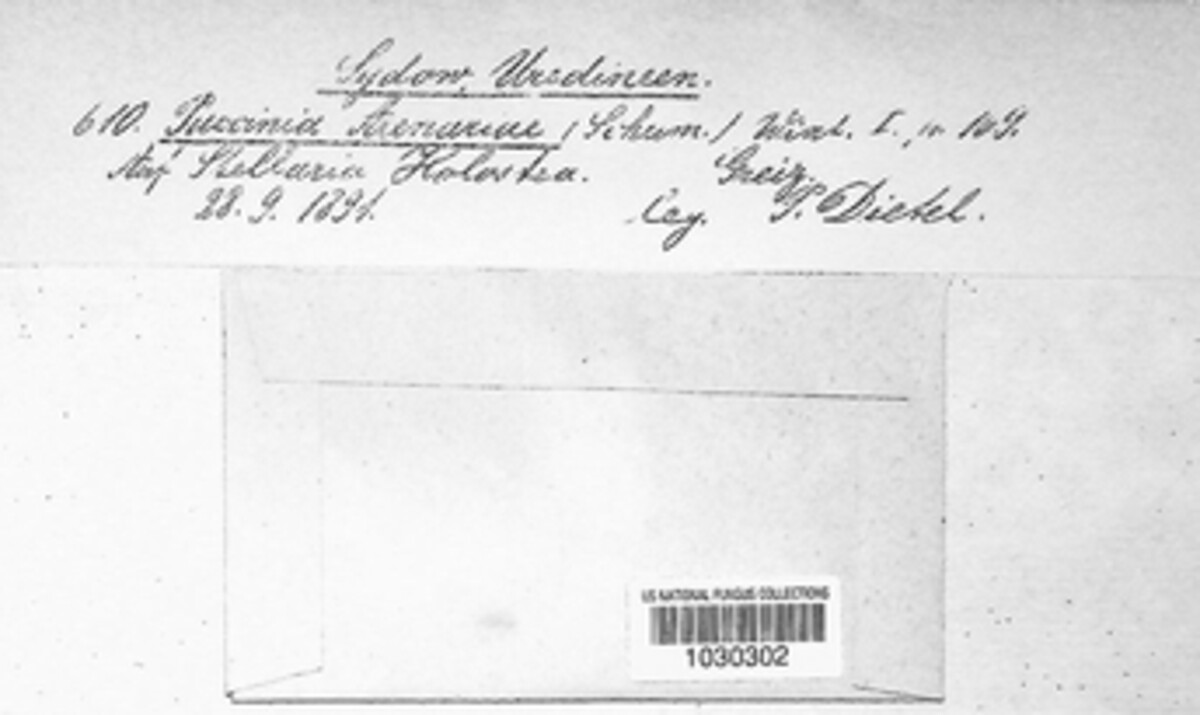 Sydow, Uredineen.
610. Puccinia Arenariae (Schum.) Wint. I., p. 169.
Auf Stellaria Holostea. Greiz.
28. 9. 1891. leg. P. Dietel.
US NATIONAL FUNGUS COLLECTIONS
1030302